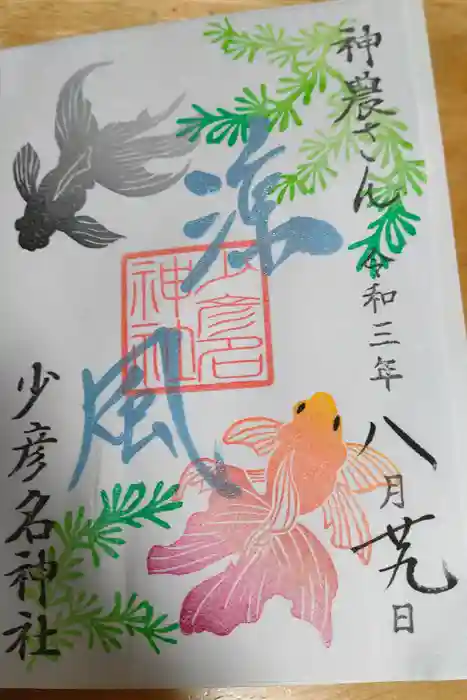 神農さん
令和三年
八月廿九日
涼風
少彦名
神社
少彦名神社